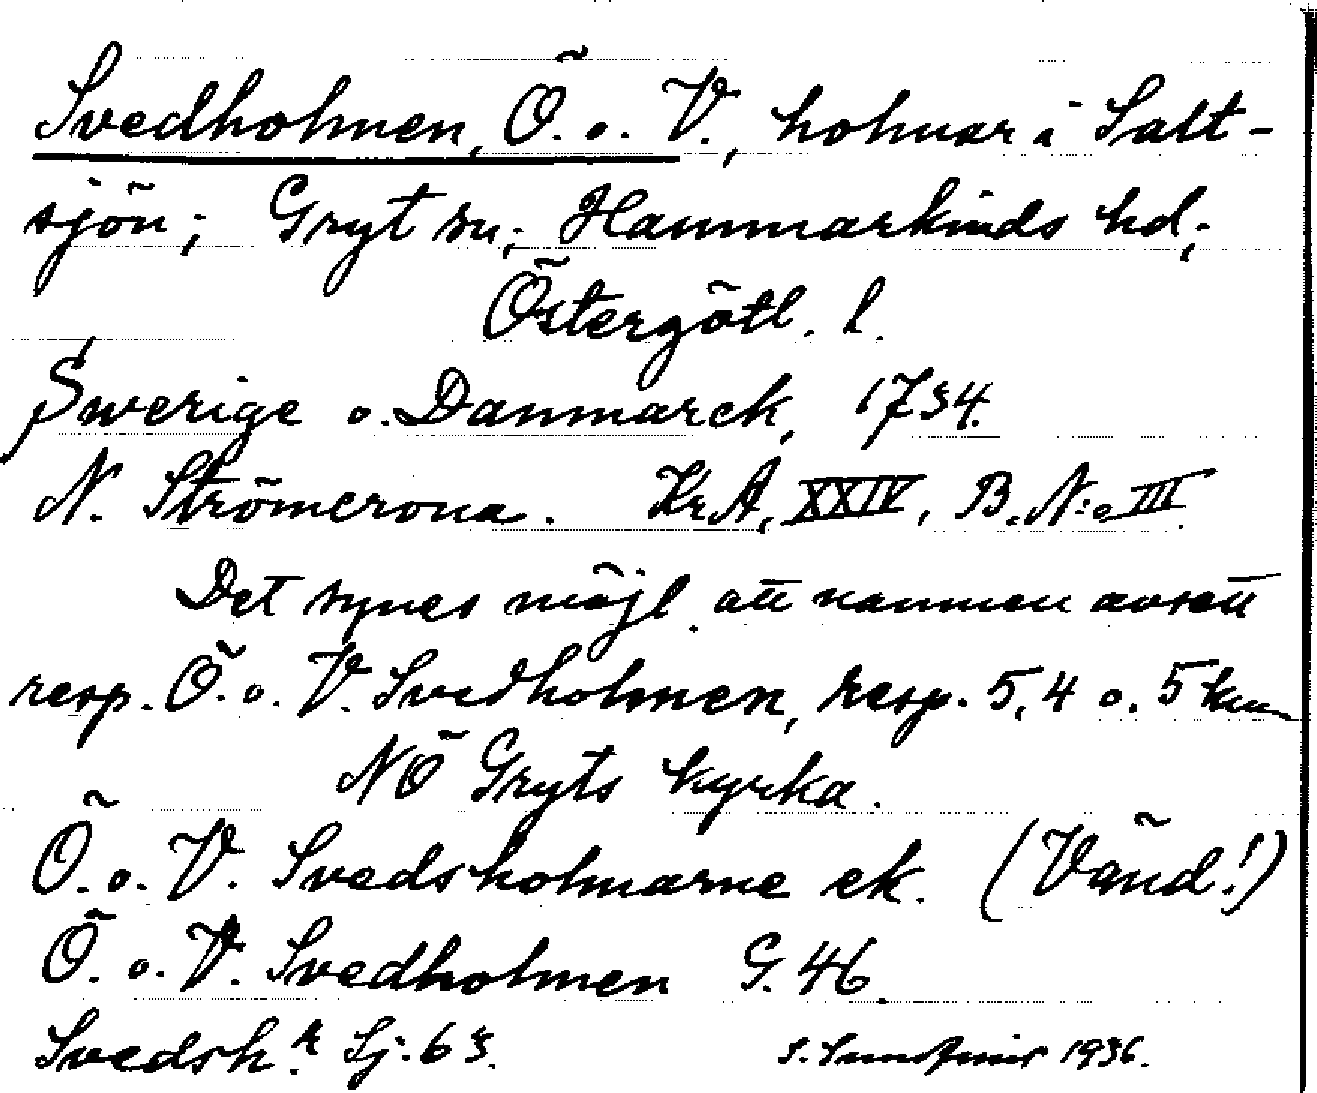 Svedholmen, Ö. o. V., holmar i Salt-
sjön; Gryt sn; Hammarkinds hd;
Östergötl. l.
Swerige o. Danmarck, 1734.
N. Strömcrona. Kr.A, XXIV, B. N:o III.
Det synes möjl. att namnen avsett
resp. Ö. o. V. Svedholmen, resp. 5,4 o. 5 km
NÖ Gryts kyrka.
Ö. o. V. Svedsholmarne ek. (Vänd!)
Ö. o. V. Svedholmen G. 46.
Svedsh.ᵃʳ Sj. 63. 1936.